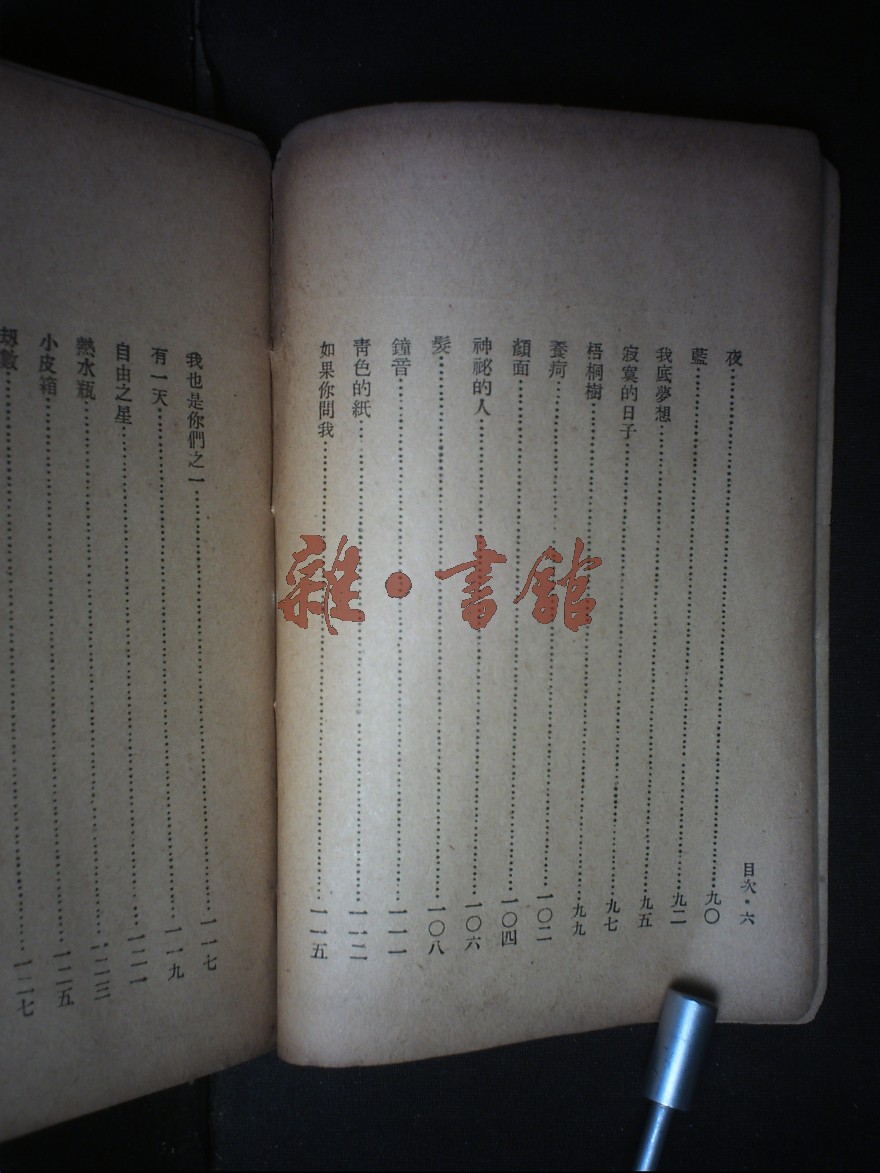 目次・六
夜……九〇
藍……九二
我底夢想……九五
寂寞的日子……九七
梧桐樹……九九
養疴……一〇二
顏面……一〇四
神祕的人……一〇六
髮……一〇八
鐘音……一一一
青色的紙……一一二
如果你問我……一一五
我也是你們之一……一一七
有一天……一一九
自由之星……一二一
熱水瓶……一二三
小皮箱……一二五
劫數……一二七
雜・書館